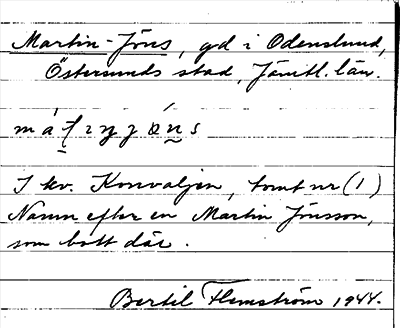 Martin-Jöns, gd i Odenslund,
Östersunds stad, Jämtl. län.
I kv. Konvaljen, tomt nr (1)
Namn efter en Martin Jönsson,
som bott där.
Bertil Flemström 1944.